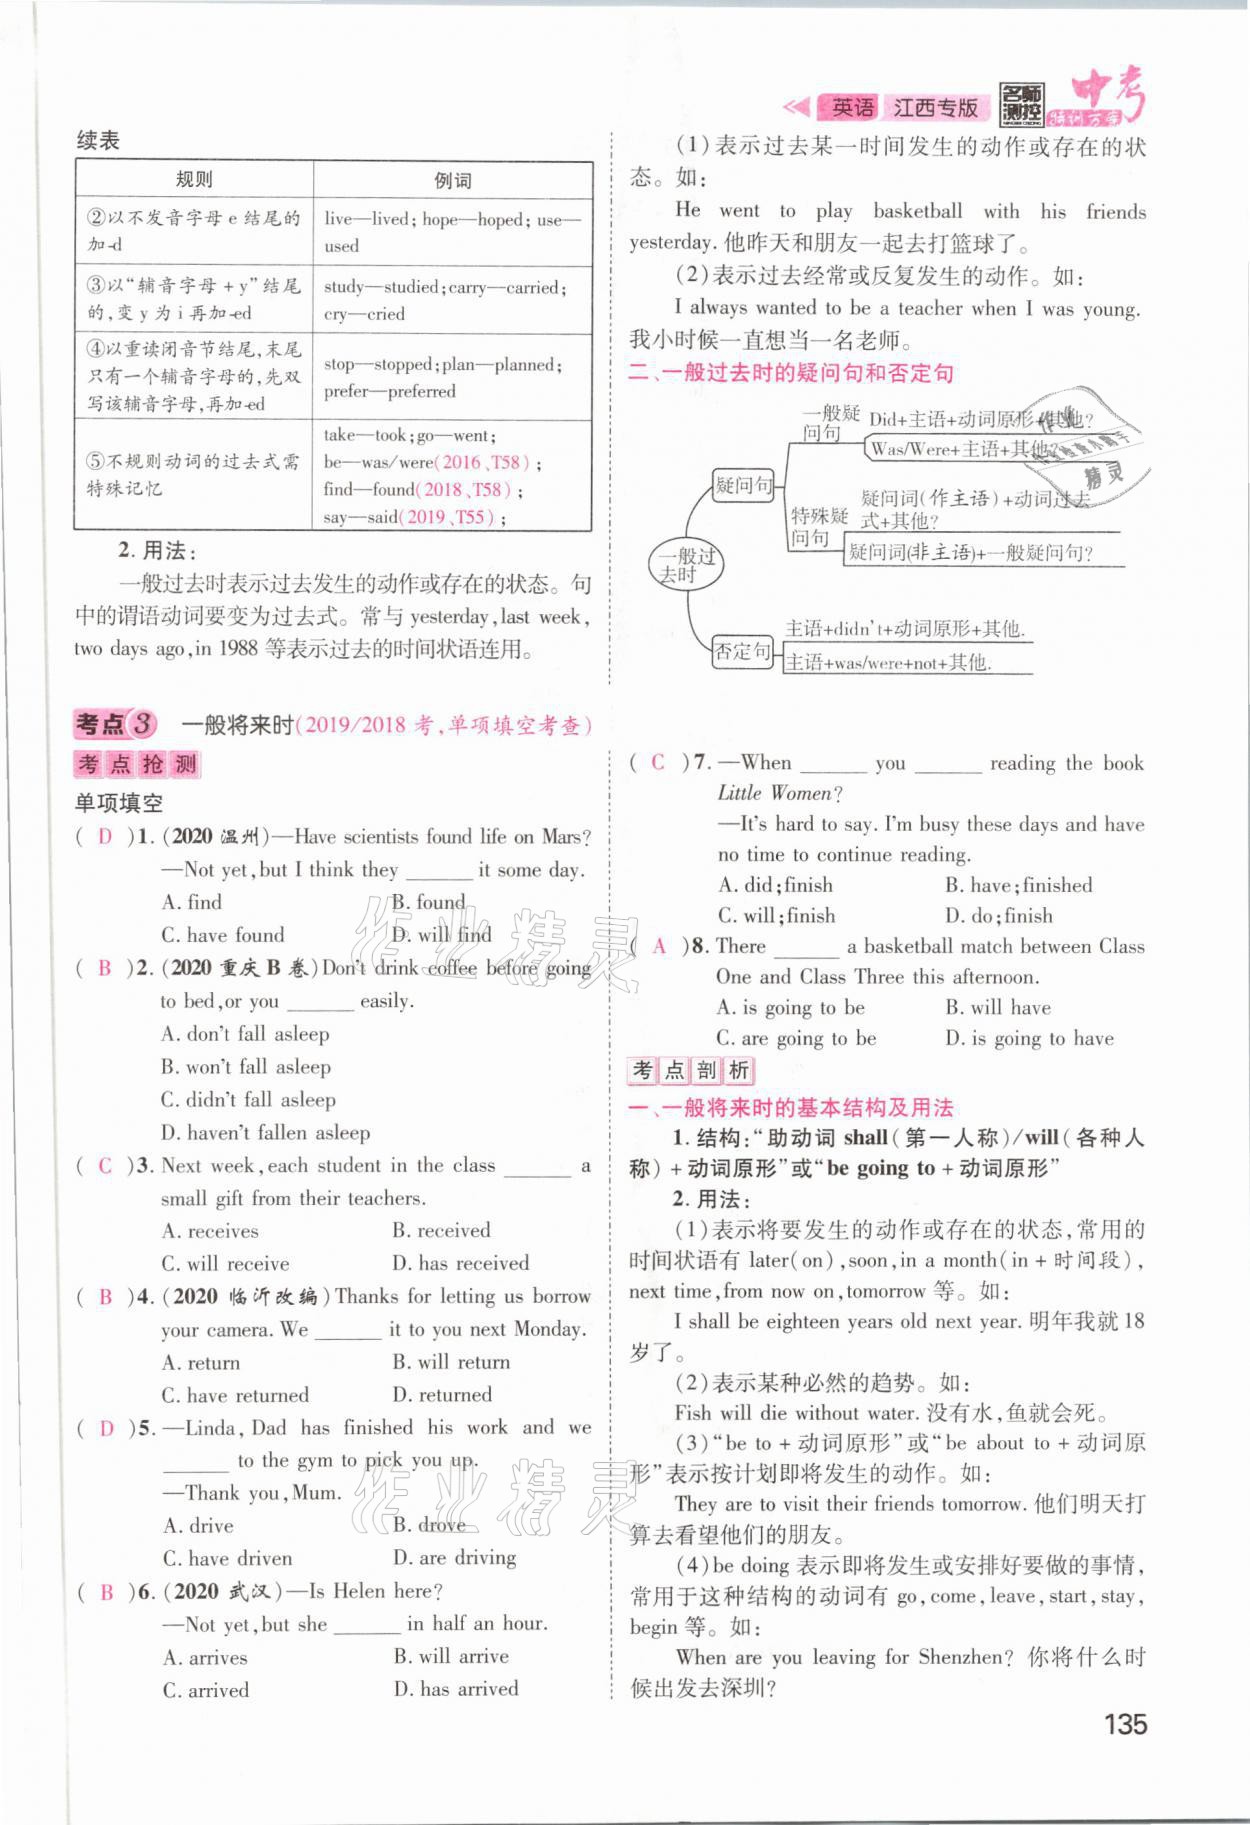 英语 江西专版 名师测控 中考 特训方案
续表
规则 例词
②以不发音字母 e 结尾的 live—lived; hope—hoped; use—
加-d used
③以“辅音字母＋y”结尾 study—studied; carry—carried;
的,变 y 为 i 再加-ed cry—cried
④以重读闭音节结尾,末尾 stop—stopped; plan—planned;
只有一个辅音字母的,先双 prefer—preferred
写该辅音字母,再加-ed
take—took; go—went;
⑤不规则动词的过去式需 be—was/were(2016、T58);
特殊记忆 find—found(2018、T58);
say—said(2019、T55);
2. 用法：
一般过去时表示过去发生的动作或存在的状态。句
中的谓语动词要变为过去式。常与 yesterday, last week,
two days ago, in 1988 等表示过去的时间状语连用。
(1)表示过去某一时间发生的动作或存在的状
态。如：
He went to play basketball with his friends
yesterday. 他昨天和朋友一起去打篮球了。
(2)表示过去经常或反复发生的动作。如：
I always wanted to be a teacher when I was young.
我小时候一直想当一名老师。
二、一般过去时的疑问句和否定句
一般过去时
疑问句
一般疑问句
Did+主语+动词原形+其他?
Was/Were+主语+其他?
特殊疑问句
疑问词(作主语)+动词过去
式+其他?
疑问词(非主语)+一般疑问句?
否定句
主语+didn't+动词原形+其他.
主语+was/were+not+其他.
考点3 一般将来时(2019/2018 考,单项填空考查)
考点抢测
单项填空
( D )1. (2020 温州)—Have scientists found life on Mars?
—Not yet, but I think they ______ it some day.
A. find B. found
C. have found D. will find
( B )2. (2020 重庆 B 卷)Don't drink coffee before going
to bed, or you ______ easily.
A. don't fall asleep
B. won't fall asleep
C. didn't fall asleep
D. haven't fallen asleep
( C )3. Next week, each student in the class ______ a
small gift from their teachers.
A. receives B. received
C. will receive D. has received
( B )4. (2020 临沂改编)Thanks for letting us borrow
your camera. We ______ it to you next Monday.
A. return B. will return
C. have returned D. returned
( D )5. —Linda, Dad has finished his work and we
______ to the gym to pick you up.
—Thank you, Mum.
A. drive B. drove
C. have driven D. are driving
( B )6. (2020 武汉)—Is Helen here?
—Not yet, but she ______ in half an hour.
A. arrives B. will arrive
C. arrived D. has arrived
( C )7. —When ______ you ______ reading the book
Little Women?
—It's hard to say. I'm busy these days and have
no time to continue reading.
A. did; finish B. have; finished
C. will; finish D. do; finish
( A )8. There ______ a basketball match between Class
One and Class Three this afternoon.
A. is going to be B. will have
C. are going to be D. is going to have
考点剖析
一、一般将来时的基本结构及用法
1. 结构：“助动词 shall(第一人称)/will(各种人
称)＋动词原形”或“be going to＋动词原形”
2. 用法：
(1)表示将要发生的动作或存在的状态,常用的
时间状语有 later(on), soon, in a month(in＋时间段),
next time, from now on, tomorrow 等。如：
I shall be eighteen years old next year. 明年我就 18
岁了。
(2)表示某种必然的趋势。如：
Fish will die without water. 没有水,鱼就会死。
(3)“be to＋动词原形”或“be about to＋动词原
形”表示按计划即将发生的动作。如：
They are to visit their friends tomorrow. 他们明天打
算去看望他们的朋友。
(4)be doing 表示即将发生或安排好要做的事情,
常用于这种结构的动词有 go, come, leave, start, stay,
begin 等。如：
When are you leaving for Shenzhen? 你将什么时
候出发去深圳?
135
作业精灵
作业精灵